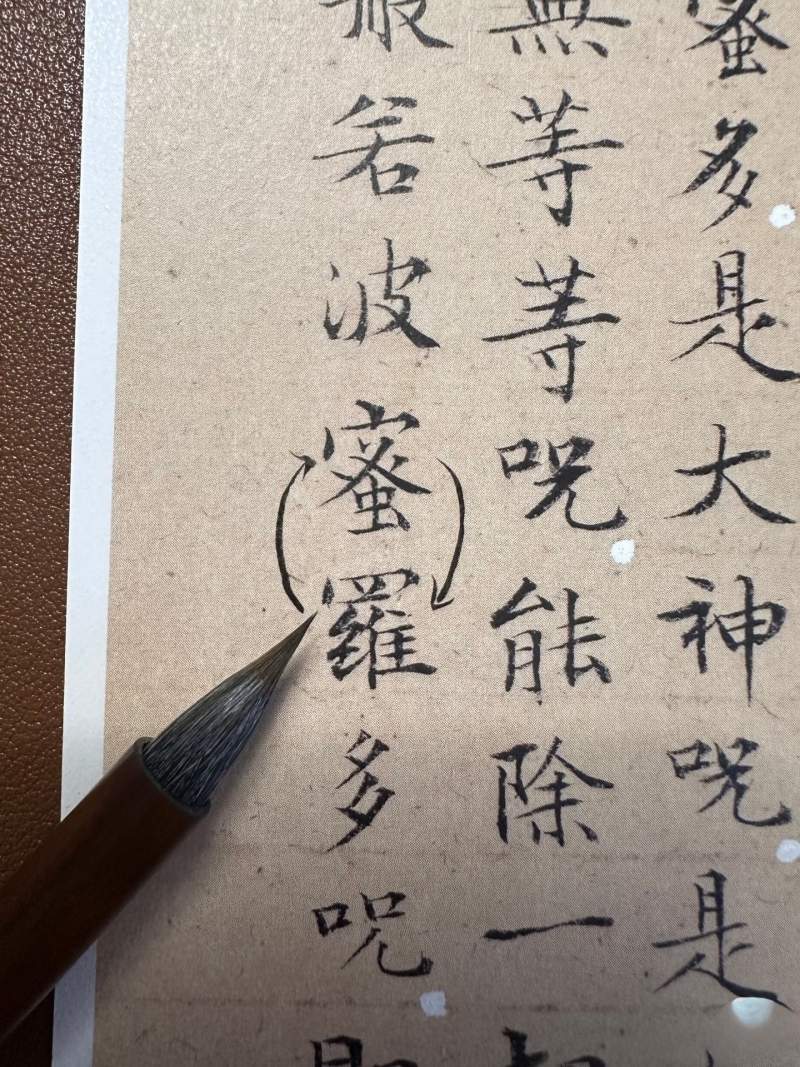 蜜多是大神咒是
無等等咒能除一
般若波蜜羅多咒